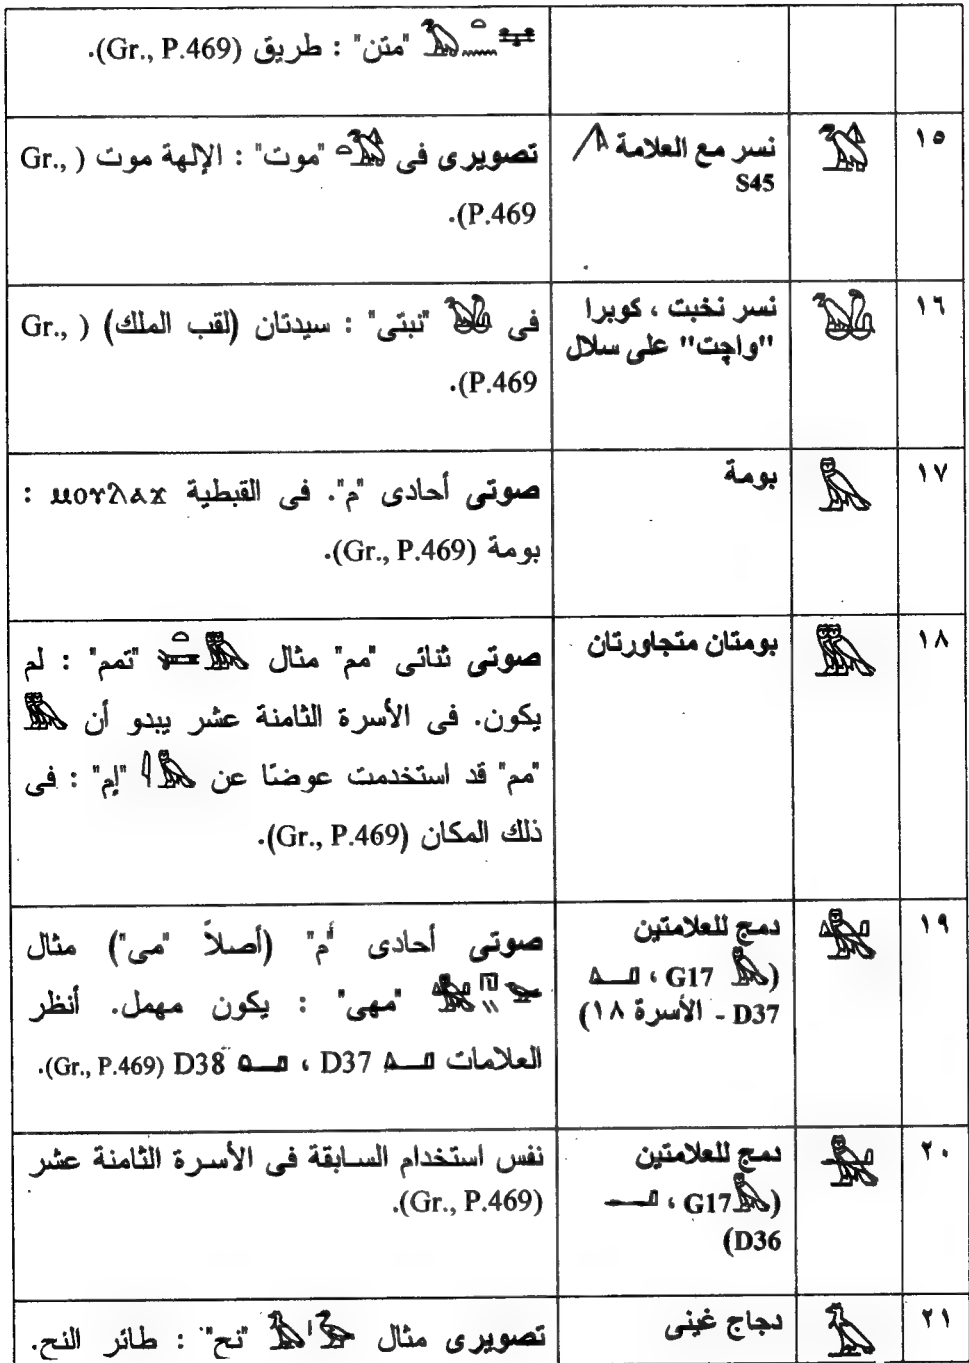 𓅓𓏏𓈖𓈈 "متن" : طريق (Gr., P.469).
١٥
نسر مع العلامة 𓌅
S45
تصويرى فى 𓅑𓏏 "موت" : الإلهة موت (Gr.,
P.469).
١٦
نسر نخبت ، كوبرا
"واچت" على سلال
فى 𓅒 "نبتى" : سيدتان (لقب الملك) (Gr.,
P.469).
١٧
𓅓
بومة
صوتى أحادى "م". فى القبطية ⲙⲟⲩⲗⲁϫ :
بومة (Gr., P.469).
١٨
𓅔
بومتان متجاورتان
صوتى ثنائى "مم" مثال "تمم" : لم
يكون. فى الأسرة الثامنة عشر يبدو أن 𓅔
"مم" قد استخدمت عوضًا عن 𓇋𓅓 "إم" : فى
ذلك المكان (Gr., P.469).
١٩
𓅕
دمج للعلامتين
(𓅓 G17 ، 𓂞
D37 - الأسرة ١٨)
صوتى أحادى "م" (أصلاً "مى") مثال
"مهى" : يكون مهمل. أنظر
العلامات 𓂞 D37 ، 𓂟 D38 (Gr., P.469).
٢٠
𓅖
دمج للعلامتين
(𓅓 G17 ، 𓂝
D36)
نفس استخدام السابقة فى الأسرة الثامنة عشر
(Gr., P.469).
٢١
𓅘
دجاج غينى
تصويرى مثال "نح" : طائر النح.